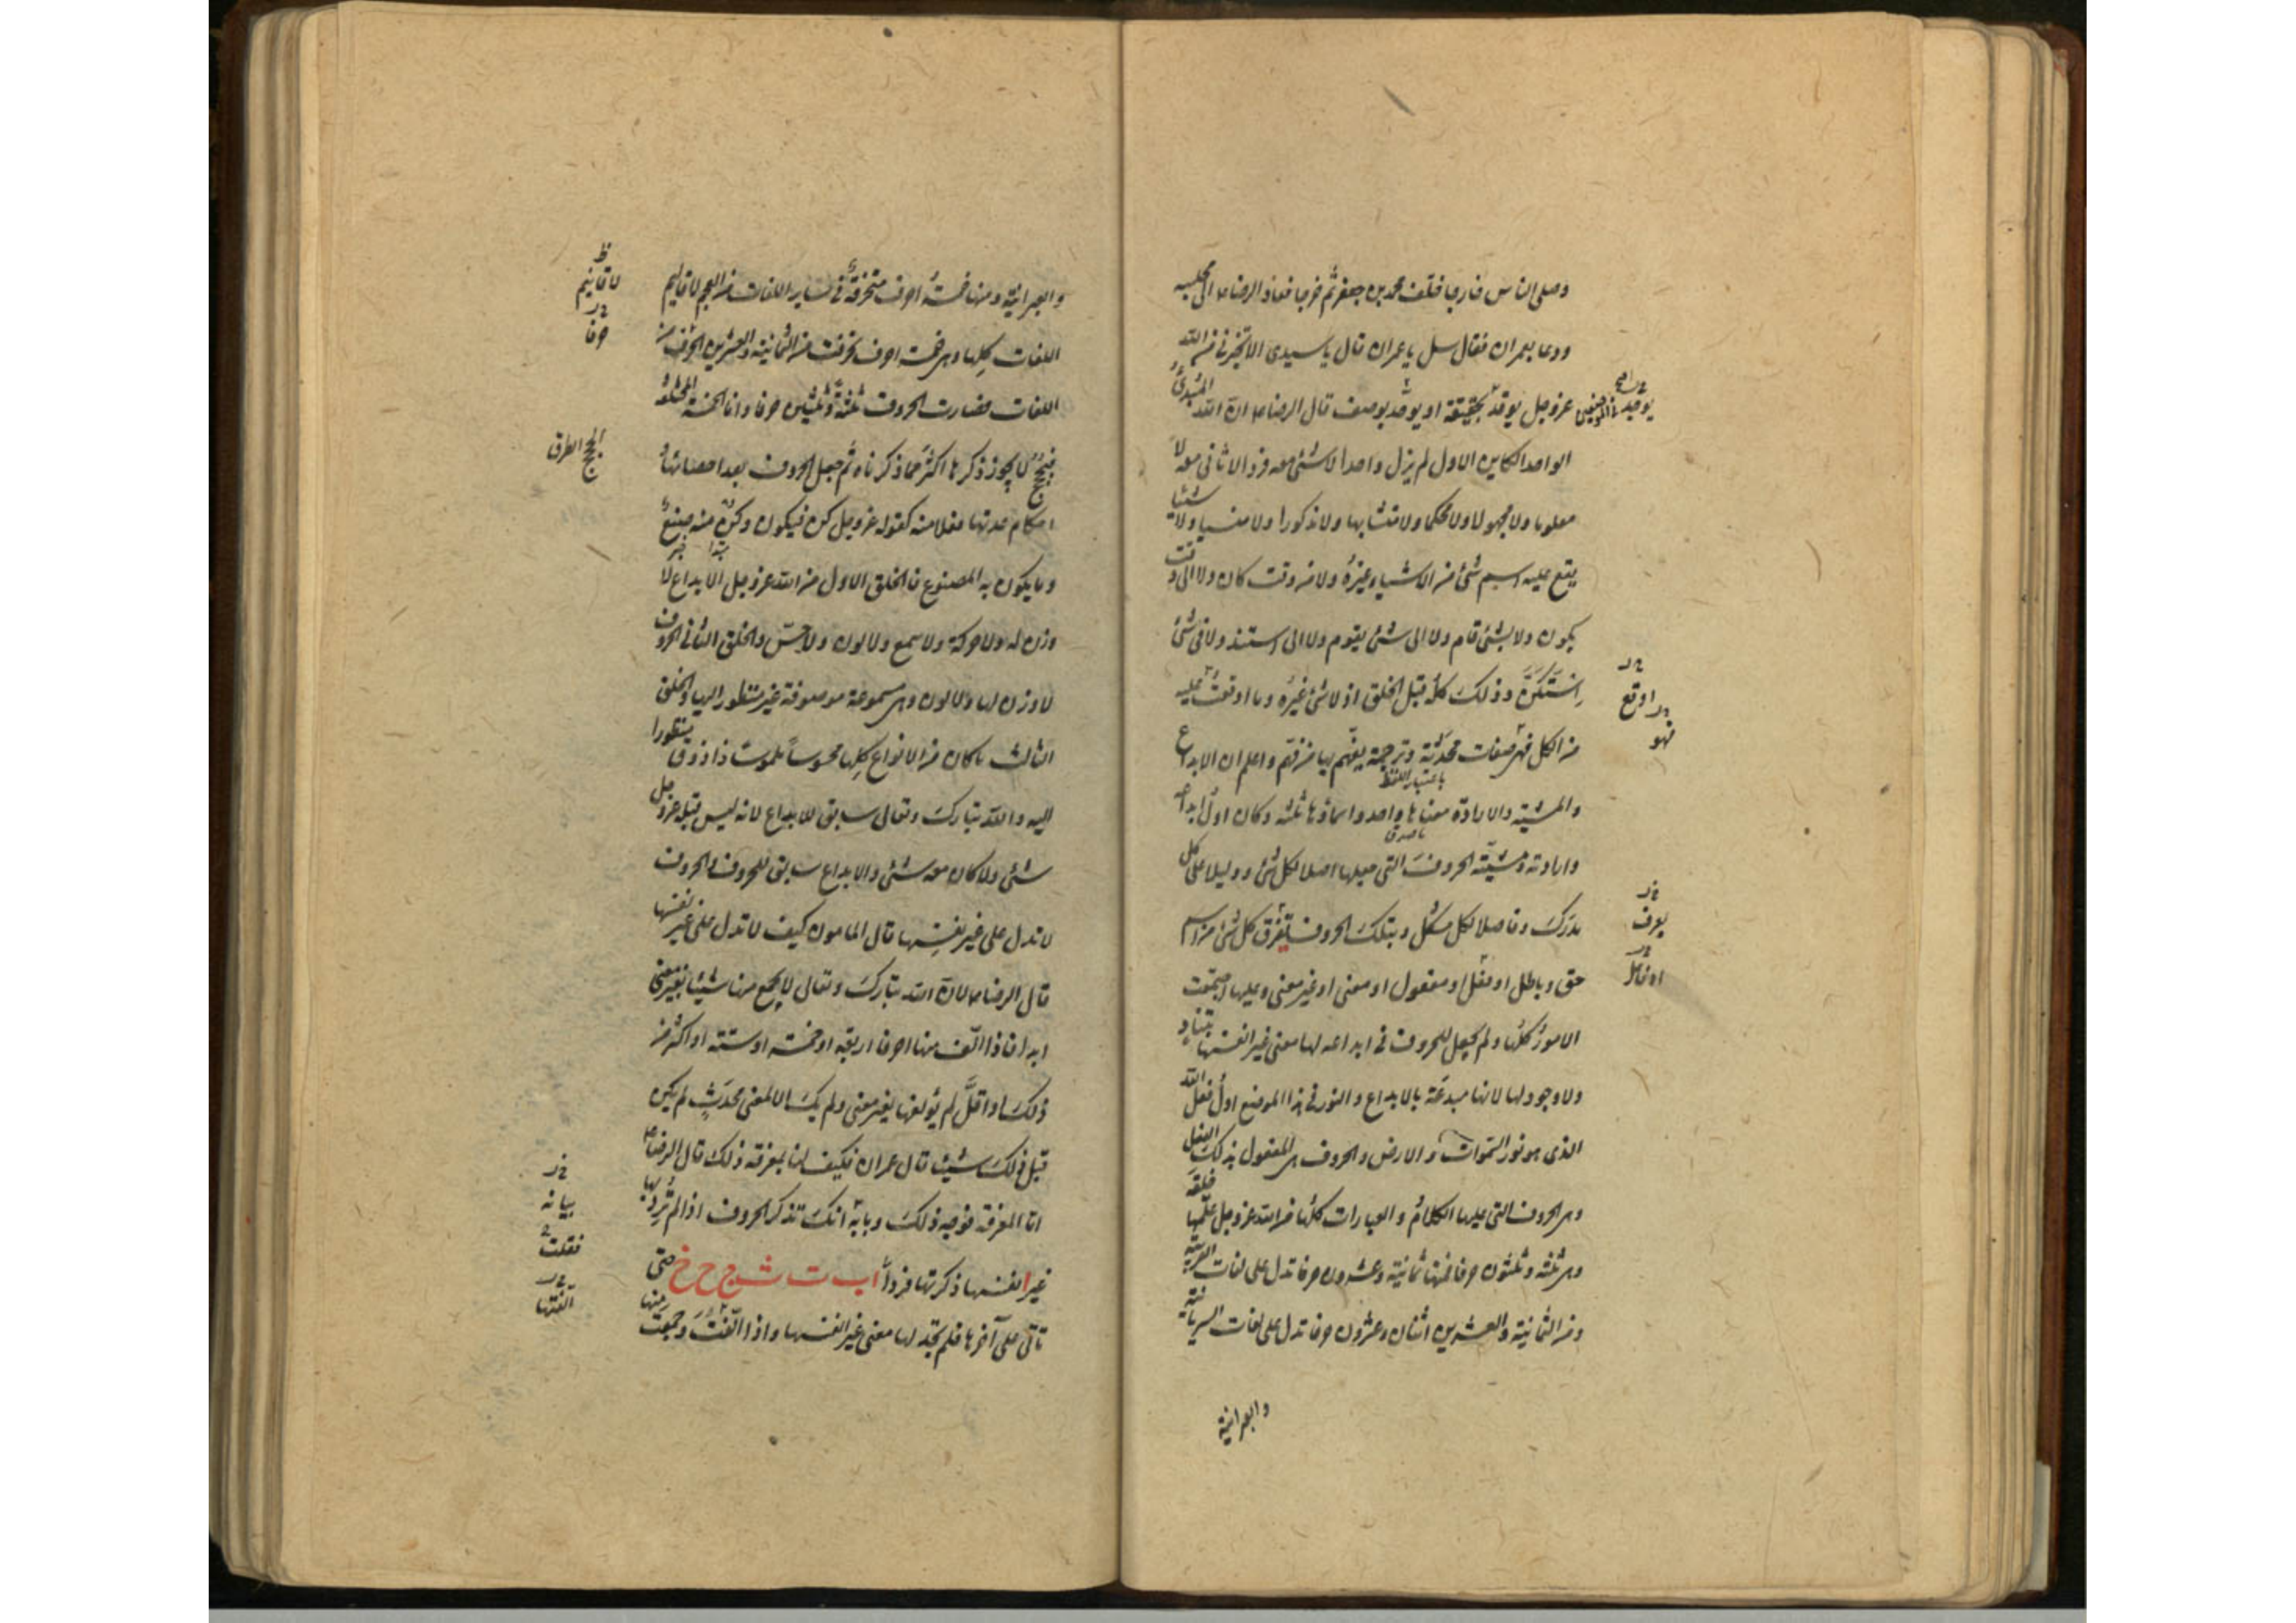 وصلى الناس خارجا خلف محمد بن جعفر ثم خرجا فعاد الرضا ع الى مجلسه
ودعا بعمران فقال سل يا عمران قال يا سيدى الا تخبرنى عن الله
عزوجل يوحّد بحقيقة او يوحّد بوصف قال الرضا ع ان الله المبدئ
الواحد الكاين الاول لم يزل واحدا لا شئ معه فردا لا ثانى معه لا
معلوما ولا مجهولا ولا محكما ولا متشابها ولا مذكورا ولا منسيا ولا شيئا
يقع عليه اسم شئ من الاشياء غيره ولا من وقت كان ولا الى وقت
يكون ولا بشئ قام ولا الى شئ يقوم ولا الى استند ولا فى شئ
استكنّ وذلك كله قبل الخلق اذ لا شئ غيره وما اوقعت عليه
من الكل فهى صفات محدثة وترجمة يفهم بها من فهم واعلم ان الابداع
باعتبار اللفظ
والمشية والارادة معناها واحد واسماؤها ثلثة وكان اول ابداعه
وارادته ومشيّته الحروف التى جعلها اصلا لكل شئ ودليلا على كل
مدرك وفاصلا لكل مشكل وبتلك الحروف تفرق كل شئ من اسم
حق وباطل او فعل او مفعول او معنى او غير معنى وعليها اجتمعت
الامور كلها ولم يجعل للحروف فى ابداعه لها معنى غير انفسها يتناهى
ولا وجود لها لانها مبدعة بالابداع والنور فى هذا الموضع اول فعل الله
الذى هو نور السموات والارض والحروف هى المفعول بذلك الفعل
وهى الحروف التى عليها الكلام والعبارات كلها من الله عزوجل علّمها خلقه
وهى ثلثة وثلثون حرفا فمنها ثمانية وعشرون حرفا تدل على لغات العربية
ومن الثمانية والعشرين اثنان وعشرون حرفا تدل على لغات السريانية
والعبرانية
يوجد
اوقع
فهو
يعرف
او فاعل
والعبرانية ومنها خمسة احرف متحرفة فى ساير اللغات من العجم لاقاليم
اللغات كلها وهى خمسة احرف تحرفت من الثمانية والعشرين الحرف من
اللغات فصارت الحروف ثلثة وثلثين حرفا واما الخمسة المختلفة
فبحجج لا يجوز ذكرها اكثر مما ذكرناه ثم جعل الحروف بعد احصائها و
احكام عدتها فعلا منه كقوله عزوجل كن فيكون وكن منه صنع
وما يكون به المصنوع فالخلق الاول من الله عزوجل الابداع لا
وزن له ولا حركة ولا سمع ولا لون ولا حس والخلق الثانى الحروف
لا وزن لها ولا لون وهى مسموعة موصوفة غير منظور اليها والخلق
الثالث ما كان من الانواع كلها محسوسا ملموسا ذا ذوق منظورا
اليه والله تبارك وتعالى سابق للابداع لانه ليس قبله عزوجل
شئ ولا كان معه شئ والابداع سابق للحروف والحروف
لا تدل على غير نفسها قال المامون كيف لا تدل على غير نفسها
قال الرضا ع لان الله تبارك وتعالى لا يجمع منها شيئا بغير معنى
ابدا فاذا الّف منها احرفا اربعة او خمسة او ستة او اكثر من
ذلك او اقل لم يؤلفها بغير معنى ولم يك الا لمعنى محدث لم يكن
قبل ذلك شيئا قال عمران فكيف لنا بمعرفة ذلك قال الرضا ع
اما المعرفة فوجه ذلك وبابه انك تذكر الحروف اذا لم ترد بها
غير انفسها ذكرتها فردا ا ب ت ث ج ح خ حتى
تاتى على آخرها فلم تجد لها معنى غير انفسها واذا الّفت وجمعت منها
لاقانيم
حرفا
الحجج الطرق
بيانه
فقلت
الّفتها